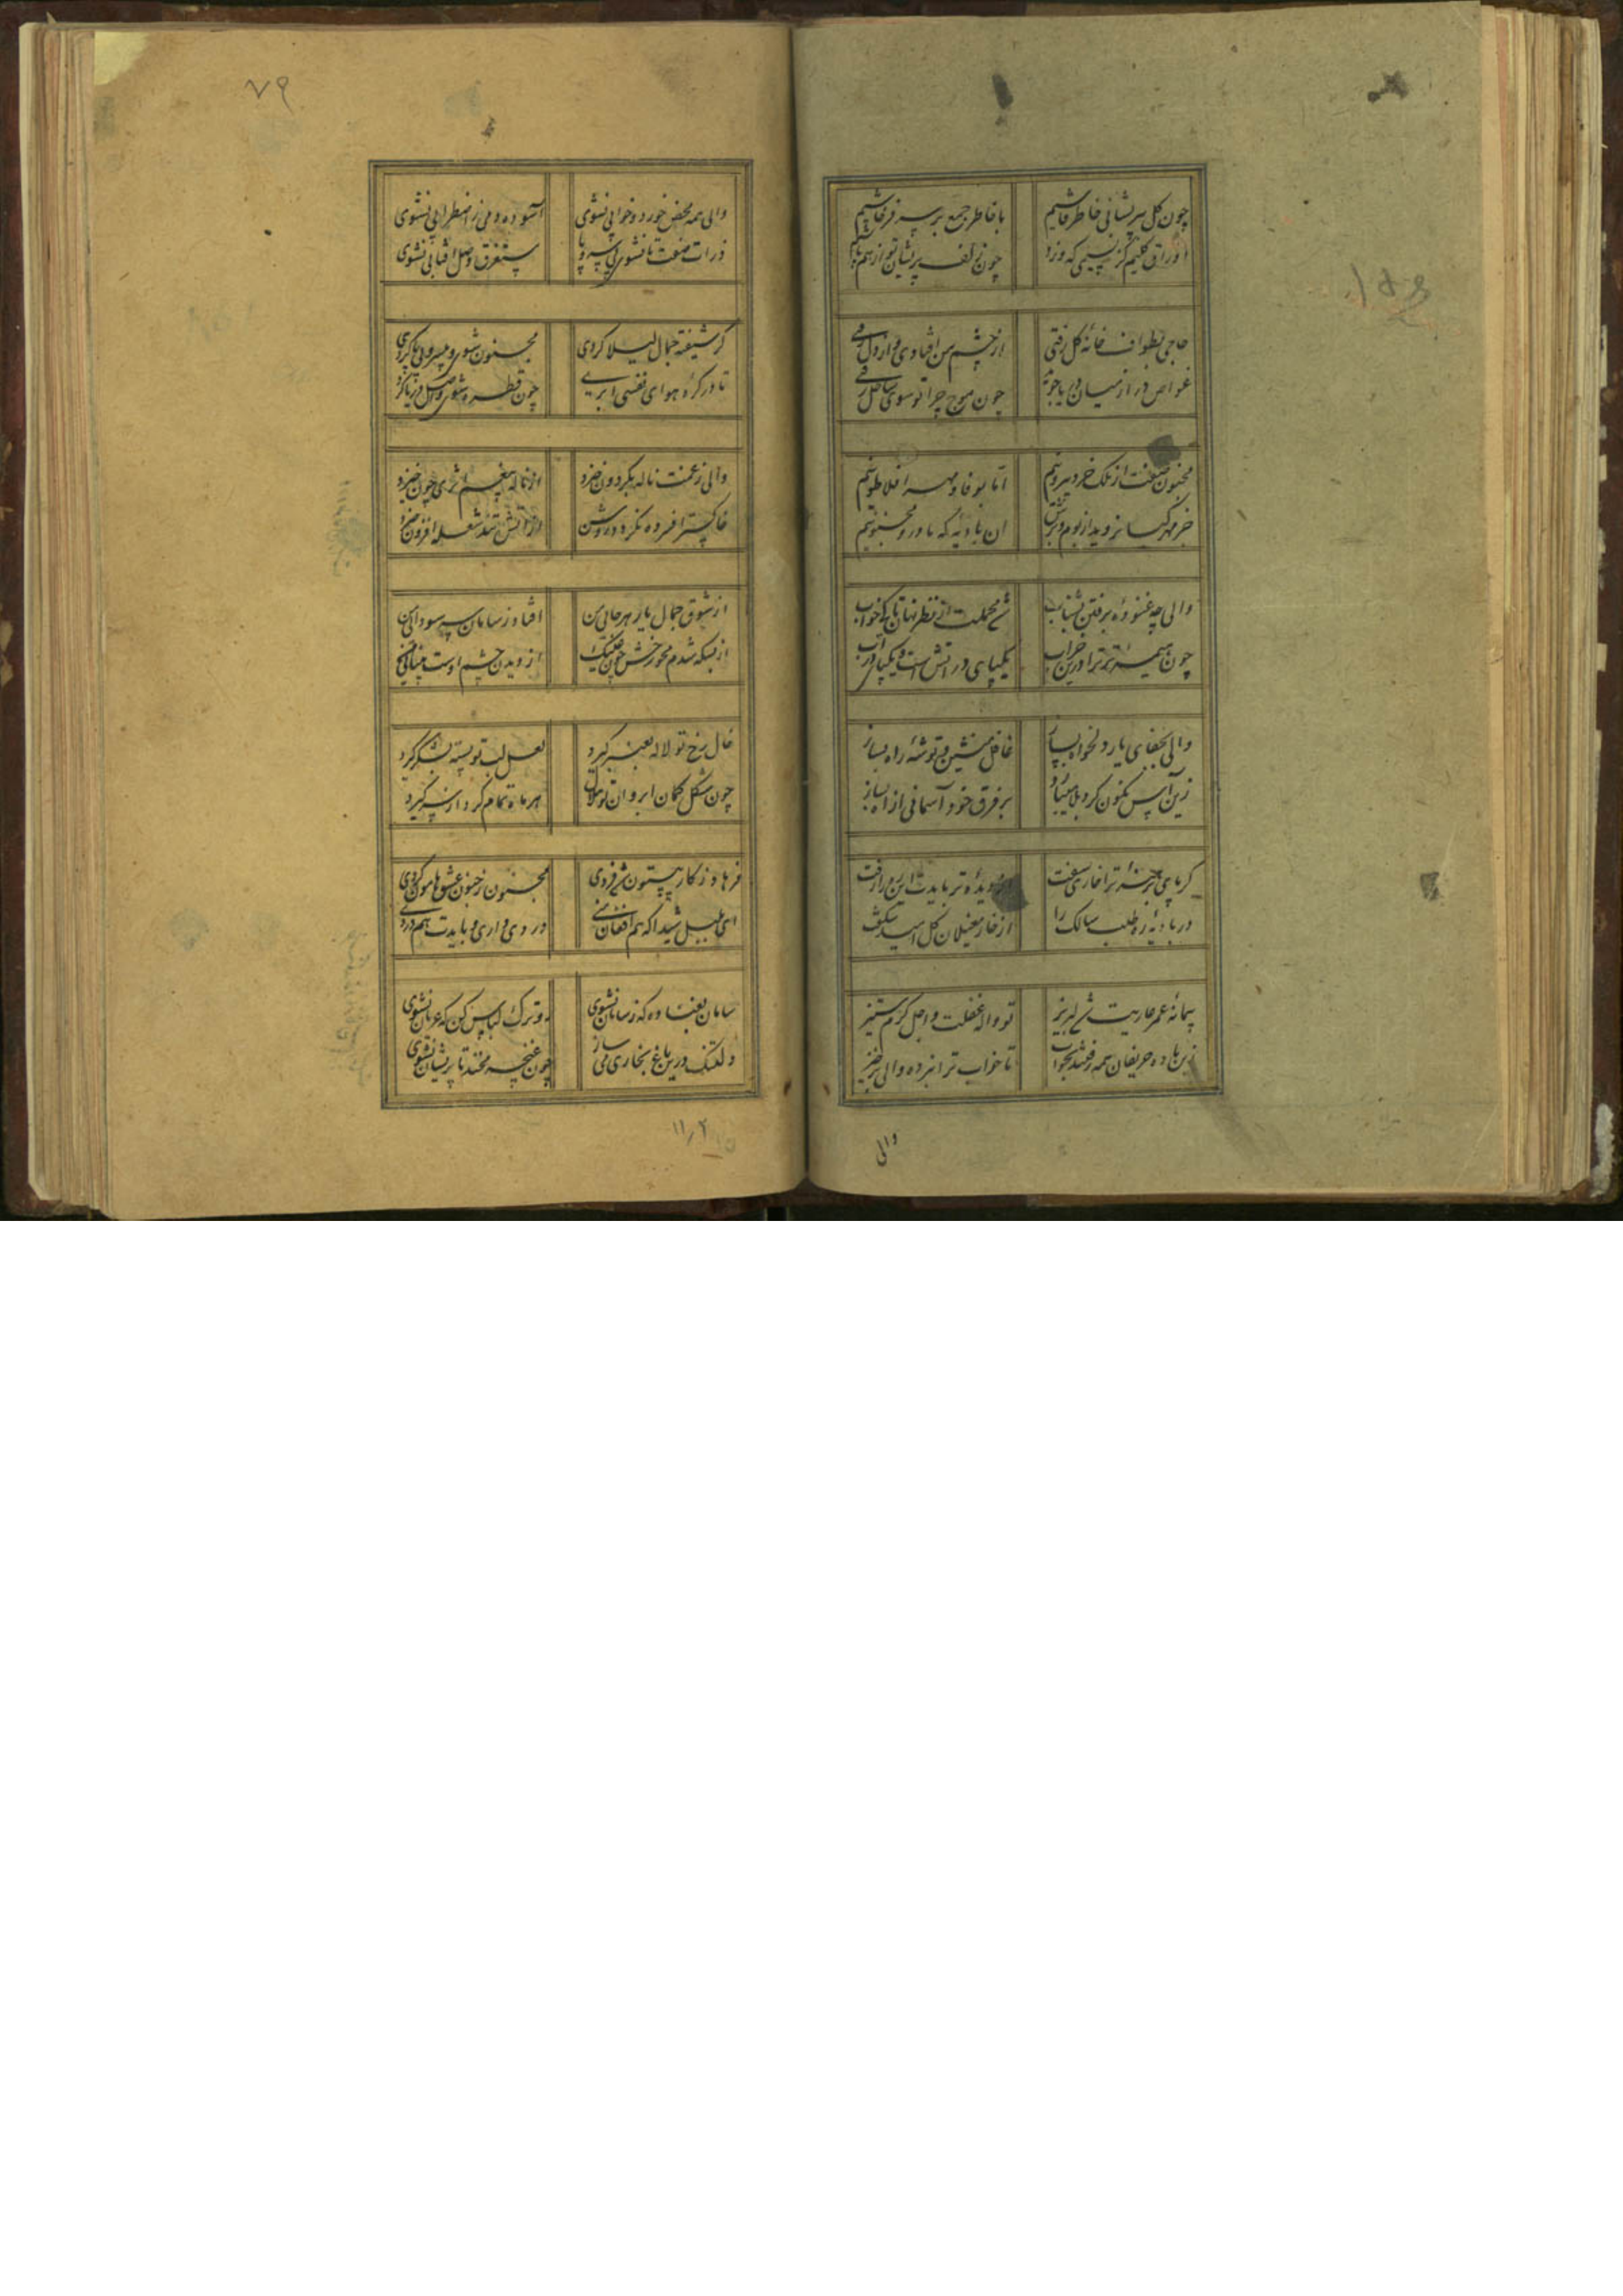 چون گل بپریشانی خاطر فاشیم
با خاطر جمع بر سر فرقاشیم
اوراق گلیم کز نسیمی که وزد
چون زلف پریشان تو از هم پاشیم
حاجی بطواف خانهٔ گل رفتی
از چشم من افتادی و از دل رفتی
غواص در از میان دریا جوید
چون موج چرا تو سوی ساحل رفتی
مجنون صفت از ملک خرد بیرونیم
اما بوفا و مهر افلاطونیم
خر مهر گیا نروید از بوم و برش
آن بادیه که ما درو مجنونیم
والی چه غنودهٔ برفتن بشتاب
شد محملت از نظر نهان تا کی خواب
چون هیمهٔ تر ترا درین
یکپای در آتش است و یکپای در آب
والی بجفای یار دلخواه بساز
غافل منشین و توشهٔ راه بساز
زین آس نگون گرد بلا میبارد
بر فرق خود آسمانی از آه بساز
گر پای برهنهٔ ترا خاری سفت
دیدهٔ تر بایدت این ره را رفت
در بادیهٔ ره طلب سالک را
از خار مغیلان گل امید شکفت
پیمانهٔ عمر عاریت شد لبریز
تو واله غفلت و اجل گرم ستیز
زین باده حریفان همه رفتند بخواب
تا خواب ترا نبرده والی برخیز
والی
۷۹
والی همه محض خورد و خوابی نشوی
آسوده دمی ز اضطرابی نشوی
ذرات صفت تا نشوی بی سر و پا
مستغرق وصل آفتابی نشوی
گر شیفتهٔ جمال لیلا گردی
مجنون شوی و
تا در کرهٔ هوای نفسی ابری
چون قطره شوی واصل دریا گردی
والی ز غمت ناله بگردون خیزد
از نالهٔ بیغم اثری چون خیزد
خاکستر افسرده نگردد روشن
از آتش تند شعله افزون خیزد
از شوق جمال یار هر جائی من
افتاد ز سامان سر سودائی من
از بسکه شدم محو رخش چون عینک
از دیدن چشم اوست بینائی من
خال رخ تو لاله بعنبر گیرد
لعل لب تو پسته بشکر گیرد
چون شکل کمان ابروان تو هلال
هر ماه تمام گردد از سر گیرد
فرهاد ز کار بیستون شد فردی
مجنون ز جنون عشق هامون گردی
ای بلبل شیدا که هم افغان منی
دردی داری و بایدت هم دردی
سامان بفنا ده که ز سامان نشوی
رو ترک لباس کن که عریان نشوی
دلتنگ درین باغ بخاری می ساز
چون غنچه مخند تا پریشان نشوی
۱۱٫۲